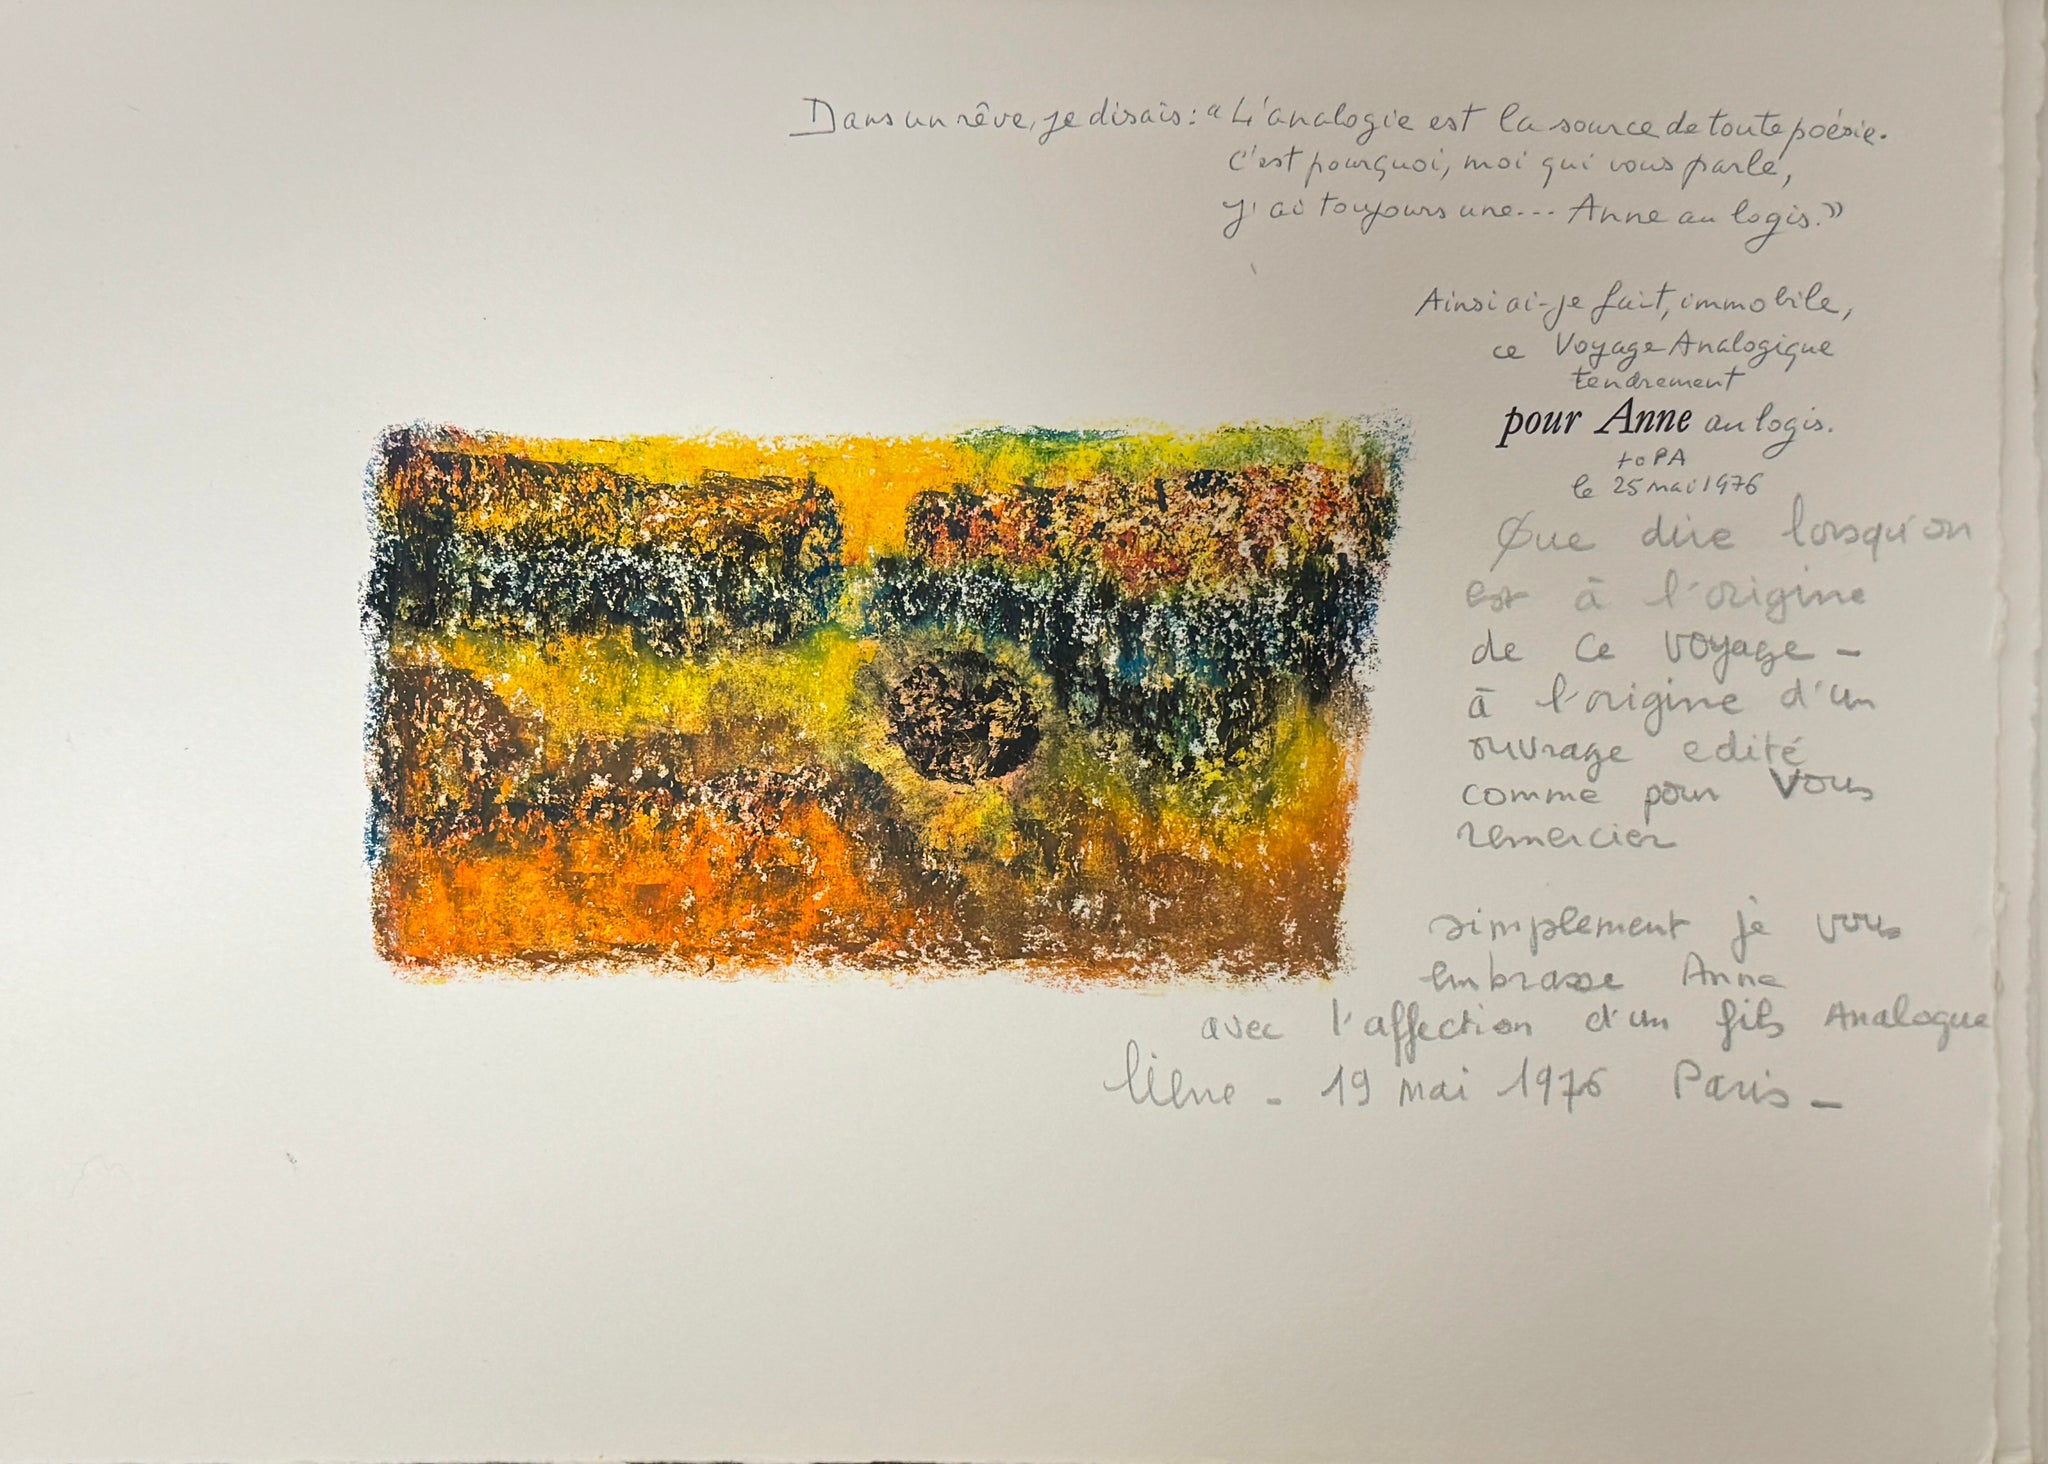 Dans un rêve, je disais: « L'analogie est la source de toute poésie.
C'est pourquoi, moi qui vous parle,
j'ai toujours une... Anne au logis. »
Ainsi ai-je fait, immobile,
ce Voyage Analogique
tendrement
pour Anne au logis.
to PA
le 25 mai 1976
Que dire lorsqu'on
est à l'origine
de ce voyage -
à l'origine d'un
ouvrage edité
comme pour Vous
remercier
simplement je vous
embrasse Anne
avec l'affection d'un fils Analogue
- 19 mai 1976 Paris -